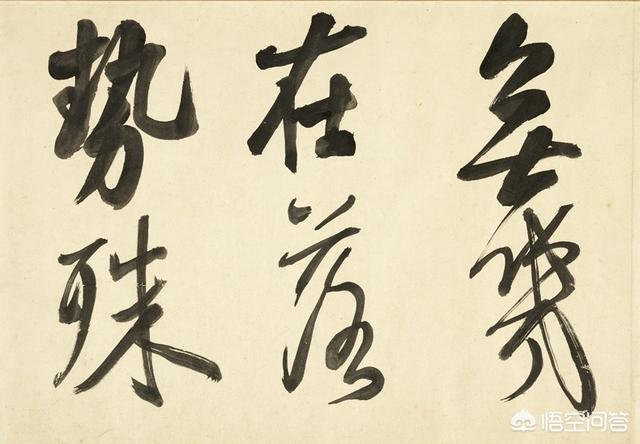 無幾
在落
勢殊
悟空问答